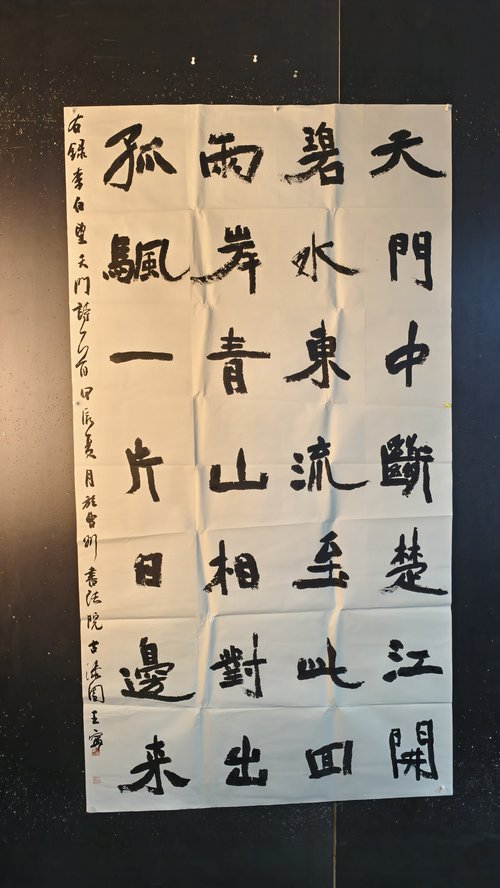 天門中斷楚江開
碧水東流至此回
兩岸青山相對出
孤颿一片日邊来
右録李白望天門詩一首甲辰夏月於曹州書法院古法園王